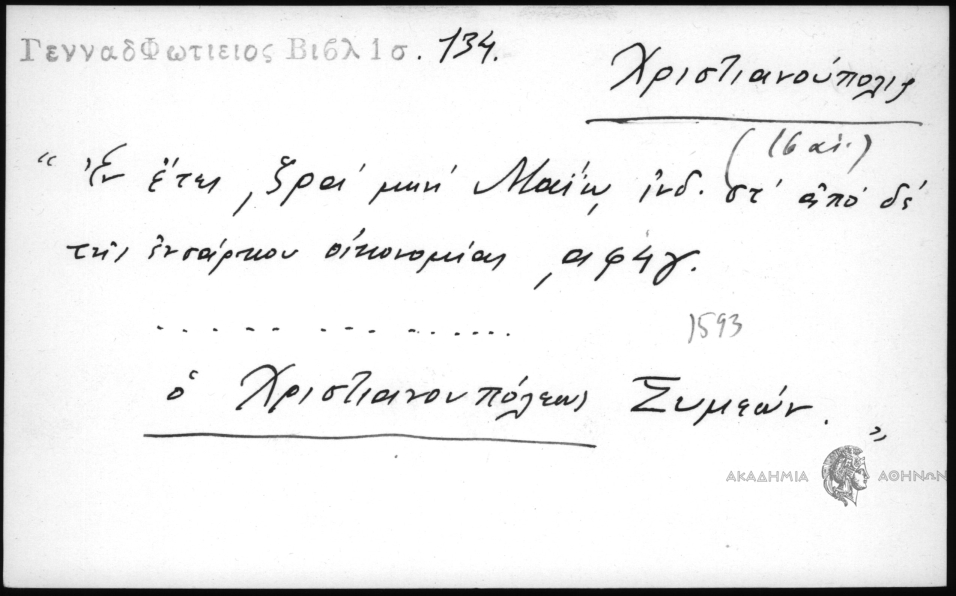 ΓενναδΦωτιειος Βιβλ ι σ. 134.
Χριστιανούπολις
(16 αἰ.)
“ Ἐν ἔτει ͵ζραʹ μηνὶ Μαΐῳ ἰνδ. στʹ ἀπὸ δὲ
τῆς ἐνσάρκου οἰκονομίας ͵αφϟγ.
. . . . . . . . . . . . . . .
1593
ὁ Χριστιανουπόλεως Συμεών. ”
ΑΚΑΔΗΜΙΑ ΑΘΗΝΩΝ